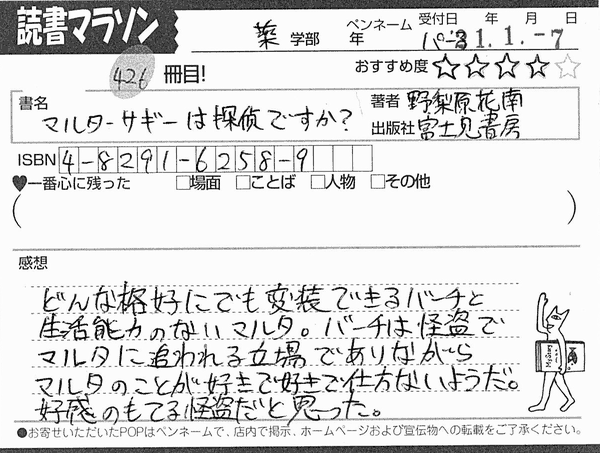 読書マラソン
薬 学部 年 ペンネーム 受付日 年 月 日
31.1.-7
426 冊目! おすすめ度 ★★★★☆
書名 マルタ・サギーは探偵ですか? 著者 野梨原花南
出版社 富士見書房
ISBN 4-8291-6258-9
♥一番心に残った □場面 □ことば □人物 □その他
( )
感想
どんな格好にでも変装できるバーチと
生活能力のないマルタ。バーチは怪盗で
マルタに追われる立場でありながら
マルタのことが好きで好きで仕方ないようだ。
好感のもてる怪盗だと思った。
●お寄せいただいたPOPはペンネームで、店内で掲示、ホームページおよび宣伝物への転載をご了承ください。